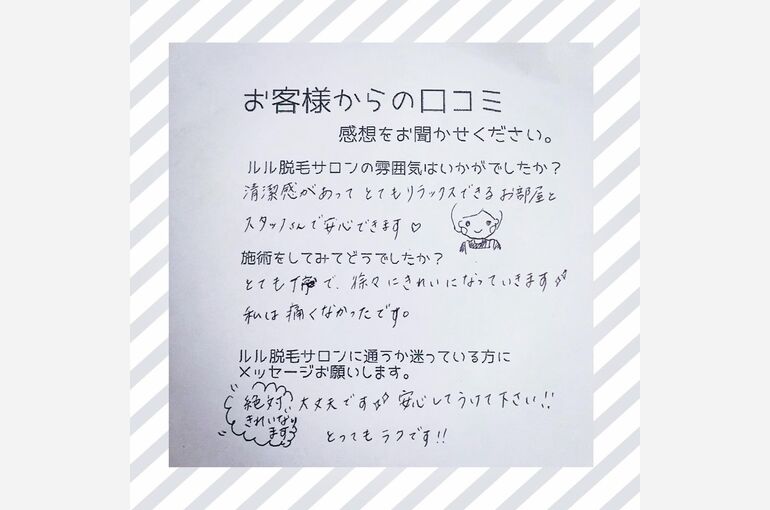 お客様からの口コミ
感想をお聞かせください。
ルル脱毛サロンの雰囲気はいかがでしたか？
清潔感があって とてもリラックスできるお部屋と
スタッフさんで安心できます♡
施術をしてみてどうでしたか？
とても丁寧で、徐々にきれいになっていきます
私は痛くなかったです。
ルル脱毛サロンに通うか迷っている方に
メッセージお願いします。
絶対 大丈夫です 安心してうけて下さい!!
きれいなり
ます
とってもラクです!!